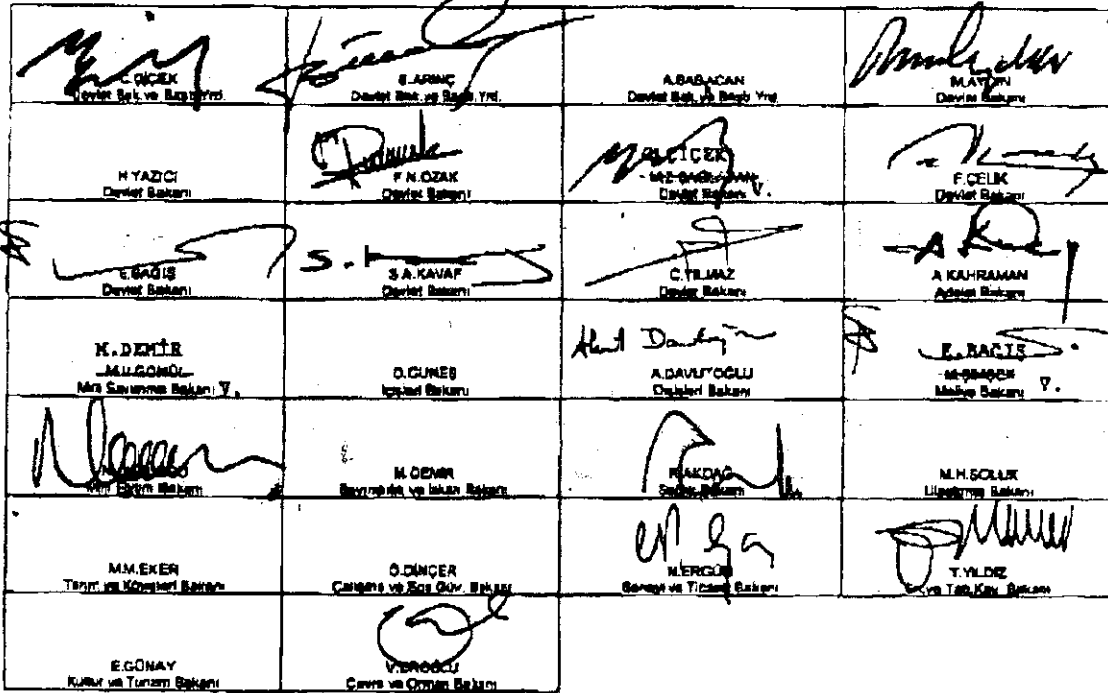 C.ÇİÇEK
Devlet Bak. ve Başb. Yrd.
B.ARINÇ
Devlet Bak. ve Başb. Yrd.
A.BABACAN
Devlet Bak. ve Başb. Yrd.
M.AYDIN
Devlet Bakanı
H.YAZICI
Devlet Bakanı
F.N.ÖZAK
Devlet Bakanı
C.ÇİÇEK
Devlet Bakanı V.
F.ÇELİK
Devlet Bakanı
E.BAĞIŞ
Devlet Bakanı
S.A.KAVAF
Devlet Bakanı
C.YILMAZ
Devlet Bakanı
A.KAHRAMAN
Adalet Bakanı
M.DEMİR
M.V.GÖNÜL
Milli Savunma Bakanı V.
Ahmet Davutoğlu
A.DAVUTOĞLU
Dışişleri Bakanı
E.BAĞIŞ
M.ŞİMŞEK
Maliye Bakanı V.
Milli Eğitim Bakanı
M.DEMİR
Bayındırlık ve İskan Bakanı
R.AKDAĞ
Sağlık Bakanı
Ulaştırma Bakanı
M.M.EKER
Tarım ve Köyişleri Bakanı
Ö.DİNÇER
Çalışma ve Sos. Güv. Bakanı
N.ERGÜN
Sanayi ve Ticaret Bakanı
T.YILDIZ
En. ve Tab. Kay. Bakanı
E.GÜNAY
Kültür ve Turizm Bakanı
V.EROĞLU
Çevre ve Orman Bakanı